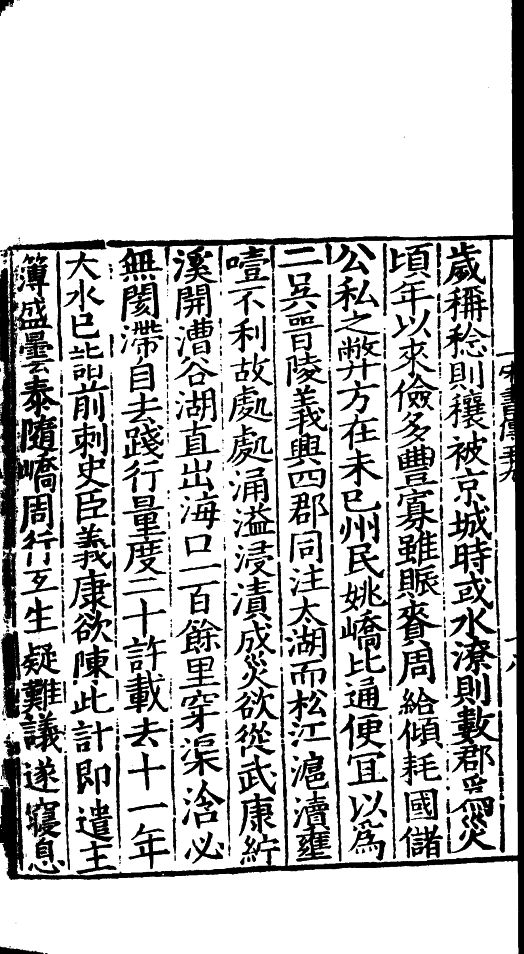 歲稱稔則穰被京城時或水潦則數郡爲災
頃年以來儉多豐寡雖賑賚周給傾耗國儲
公私之弊方在未已州民姚嶠比通便宜以爲
二吳晉陵義興四郡同注太湖而松江滬瀆壅
噎不利故處處涌溢浸漬成災欲從武康紵
溪開漕谷湖直出海口一百餘里穿渠浛必
無閡滯自去踐行量度二十許載去十一年
大水已詣前刺史臣義康欲陳此計即遣主
簿盛曇泰隨嶠周行互生疑難議遂寢息